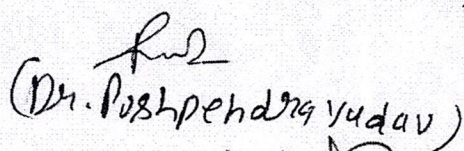 (Dr. Pushpendra Yadav)